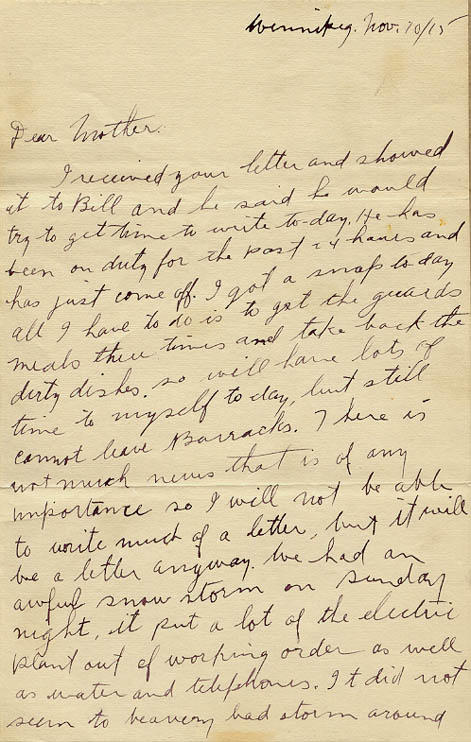 Winnipeg. Nov. 10/15
Dear Mother.
I received your letter and showed
it to Bill and he said he would
try to get time to write to-day. He has
been on duty for the past 24 hours and
has just come off. I got a snap to-day
all I have to do is to get the guards
meals three times and take back the
dirty dishes. so will have lots of
time to myself to day, but still
cannot leave Barracks. There is
not much news that is of any
importance so I will not be able
to write much of a letter, but it will
be a letter anyway. We had an
awful snow storm on Sunday
night, it put a lot of the electric
plant out of working order as well
as water and telephones. It did not
seem to be a very bad storm around